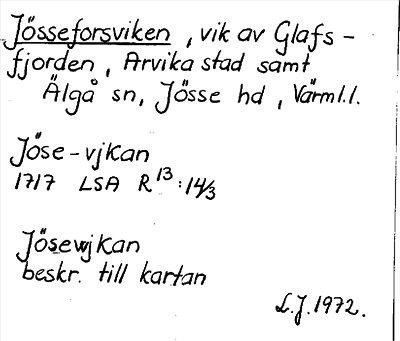 Jösseforsviken, vik av Glafs-
fjorden, Arvika stad samt
Älgå sn, Jösse hd, Värml.l.
Jöse-vjkan
1717 LSA R13:14/3
Jösevjkan
beskr. till kartan
L.J. 1972.